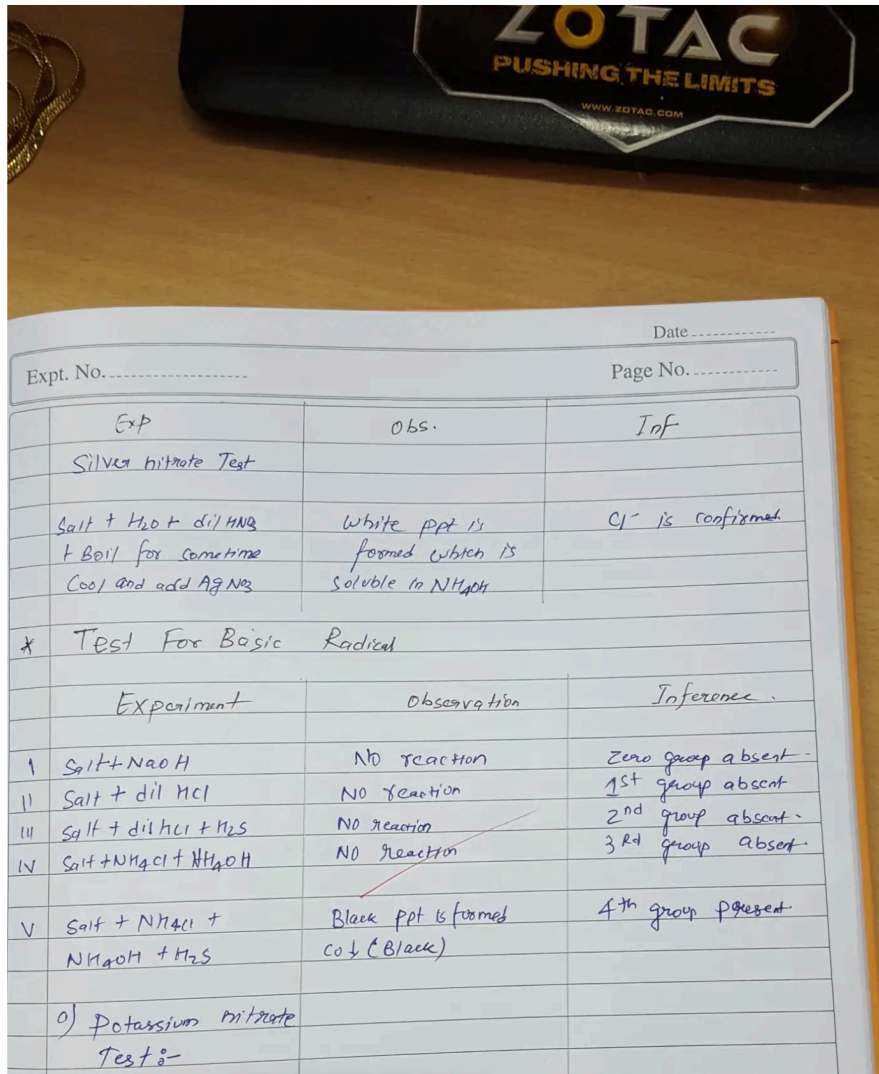 ZOTAC
PUSHING THE LIMITS
WWW.ZOTAC.COM
Date
Expt. No.
Page No.
Exp Obs. Inf
Silver nitrate Test
Salt + H2O + dil HNO3 White ppt is Cl- is confirmed
+ Boil for sometime formed which is
Cool and add AgNO3 Soluble in NH4OH
* Test For Basic Radical
Experiment Observation Inference.
I Salt + NaOH No reaction Zero group absent.
II Salt + dil HCl No reaction 1st group absent
III Salt + dil HCl + H2S No reaction 2nd group absent.
IV Salt + NH4Cl + NH4OH No reaction 3Rd group absent.
V Salt + NH4Cl + Black ppt is formed 4th group present.
NH4OH + H2S Co↓ (Black)
Potassium nitrate
Test :-